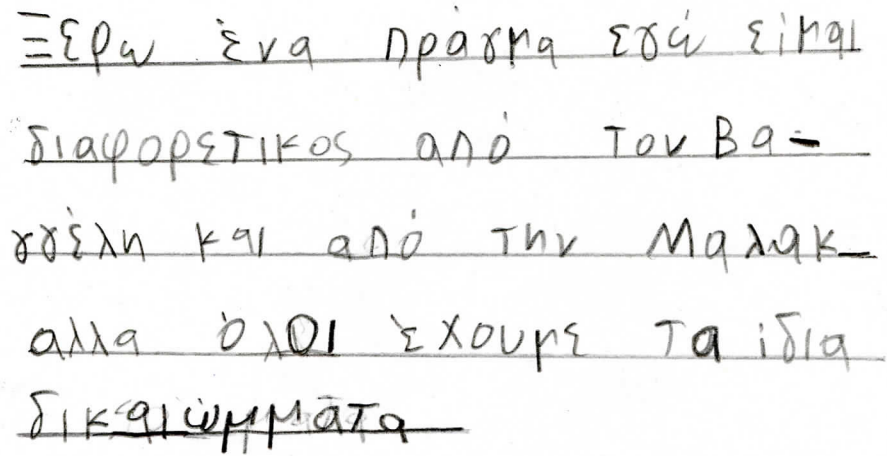 Ξερω ένα πράγμα εγώ είμαι
διαφορετικος από τον Βα-
γγέλη και από την Μαλακ
αλλα όλοι έχουμε τα ίδια
δικαιώμματα